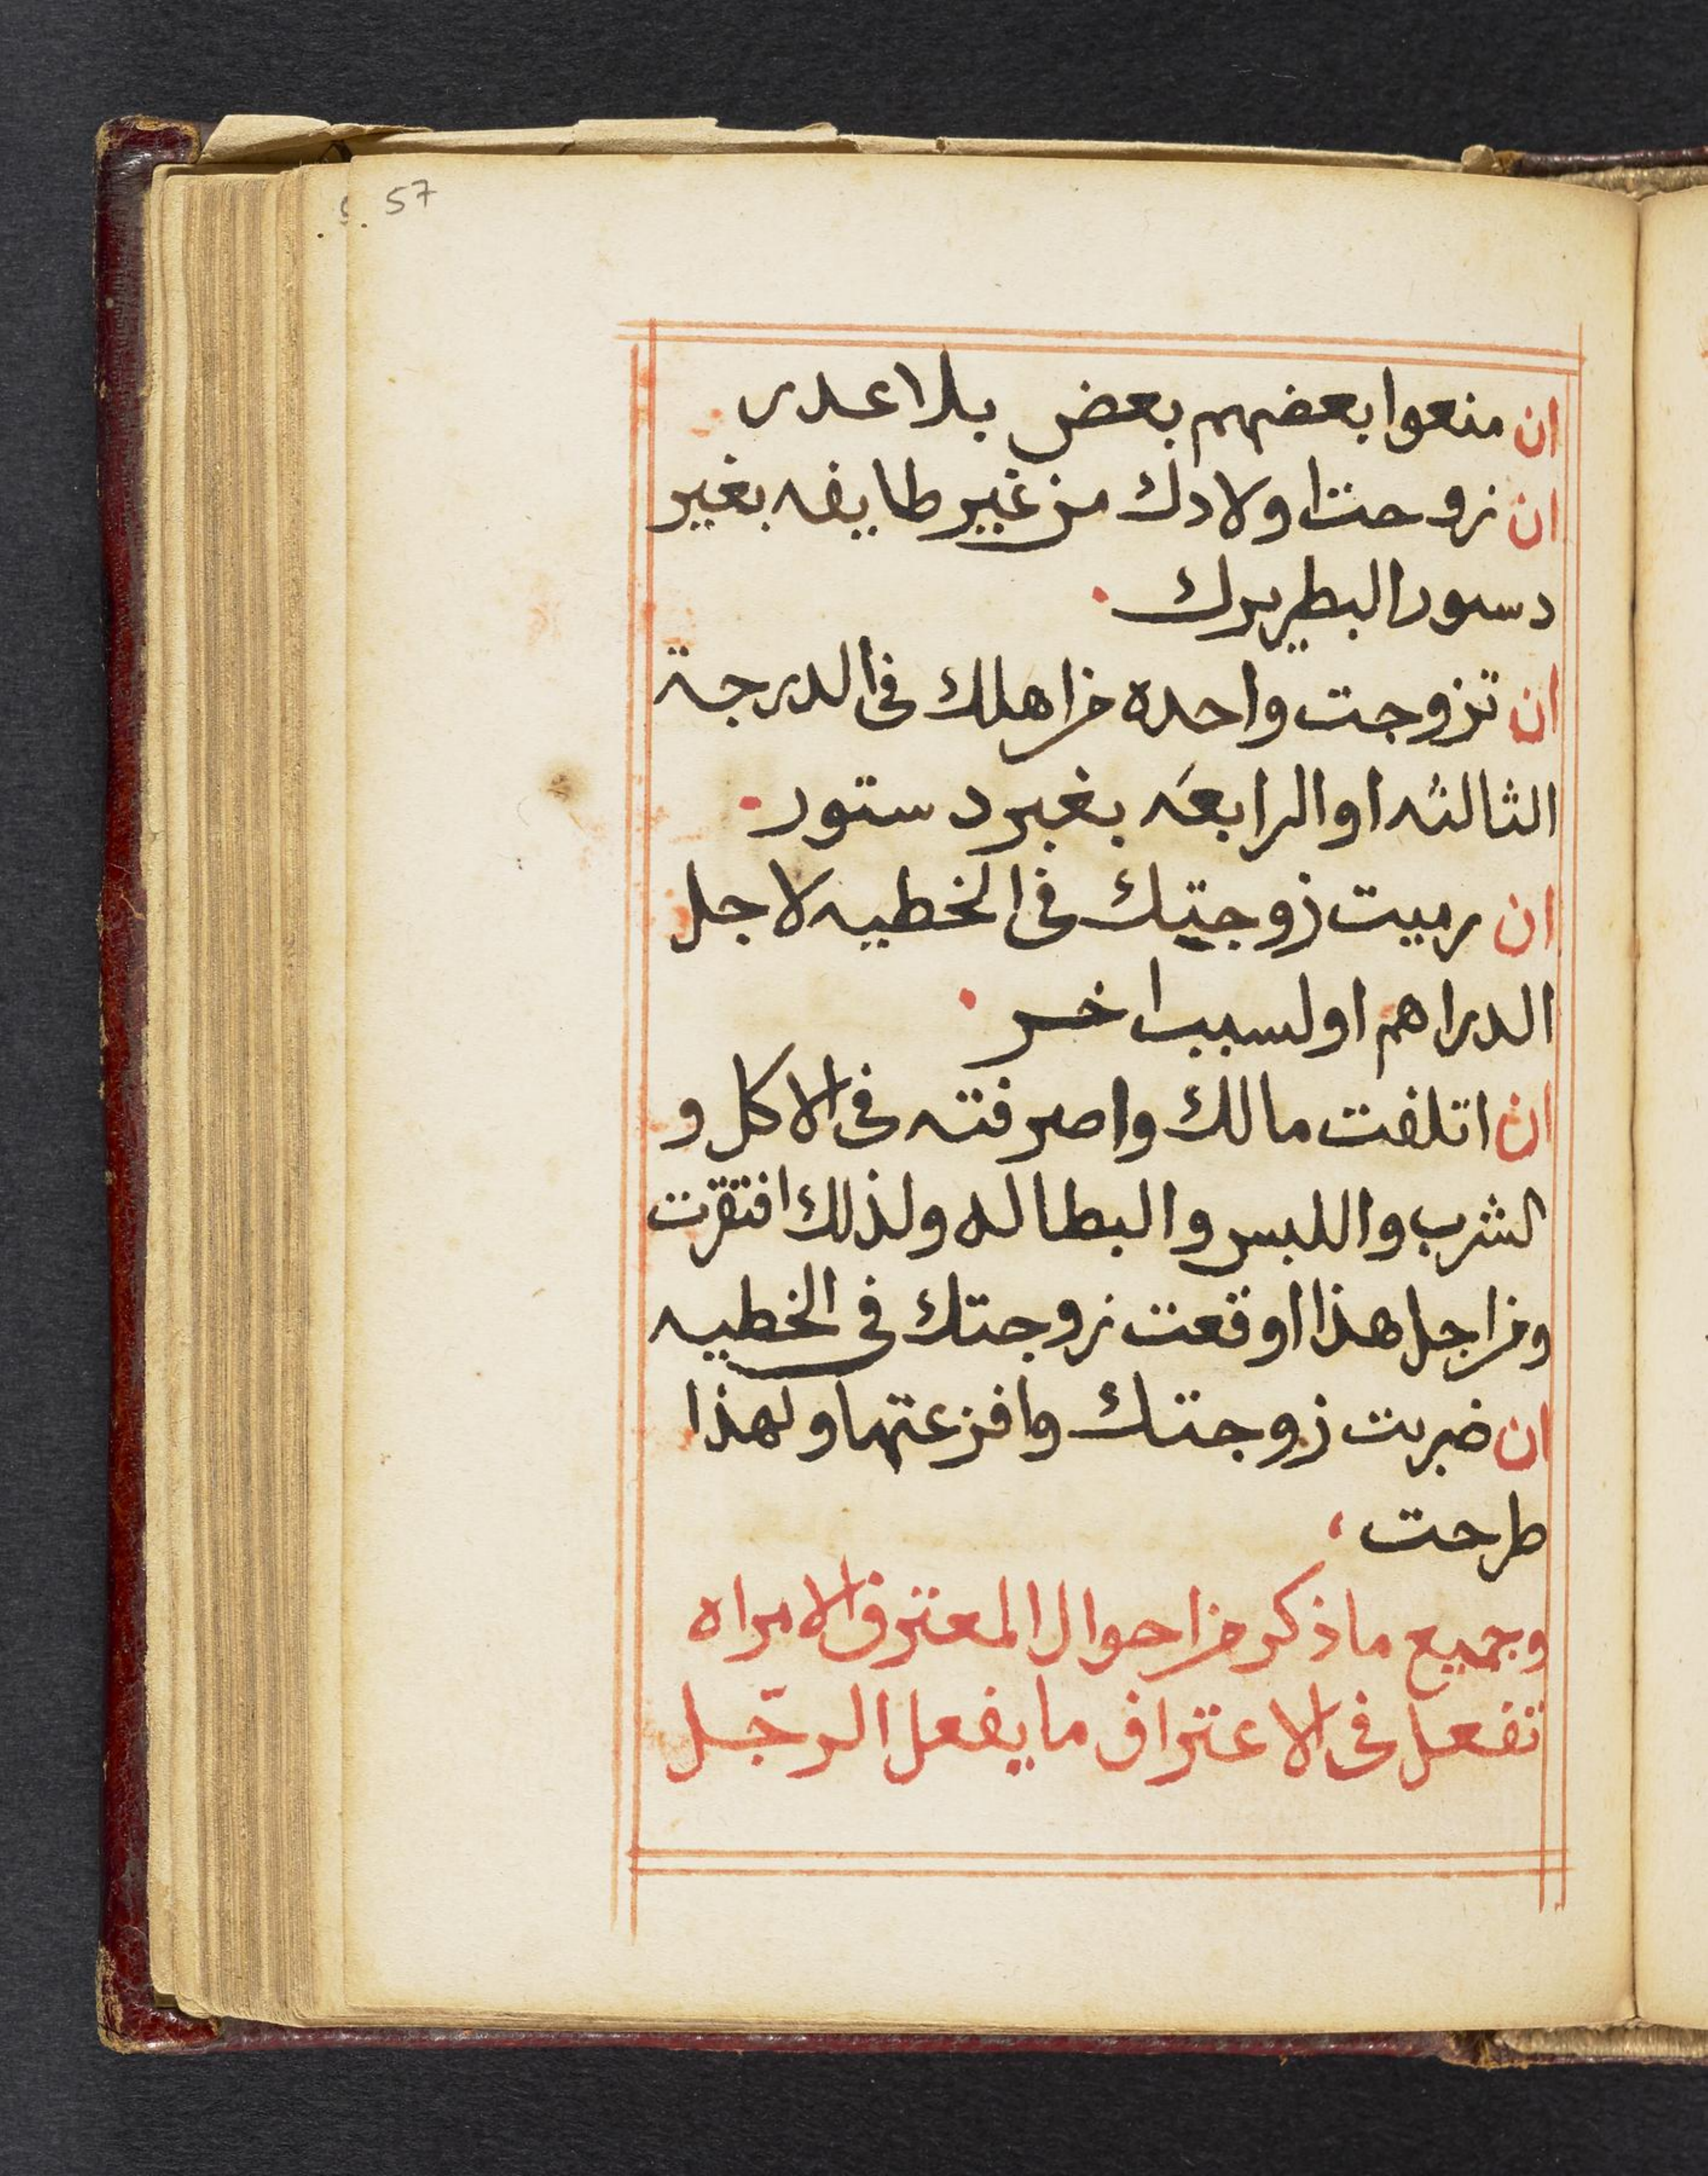 57
ان منعوا بعضهم بعض بلا عدر
ان زوجت اولادك من غير طايفه بغير
دستور البطريرك
ان تزوجت واحده من اهلك في الدرجة
الثالثه او الرابعه بغير دستور
ان رميت زوجتك في الخطيه لاجل
الدراهم او لسبب اخر
ان اتلفت مالك واصرفته في الاكل و
الشرب واللبس والبطاله ولذلك افتقرت
ومن اجل هذا اوقعت زوجتك في الخطيه
ان ضربت زوجتك وافزعتها ولهذا
طرحت
وجميع ما ذكر من احوال المعترف الامراه
تفعل في الاعتراف ما يفعل الرجل